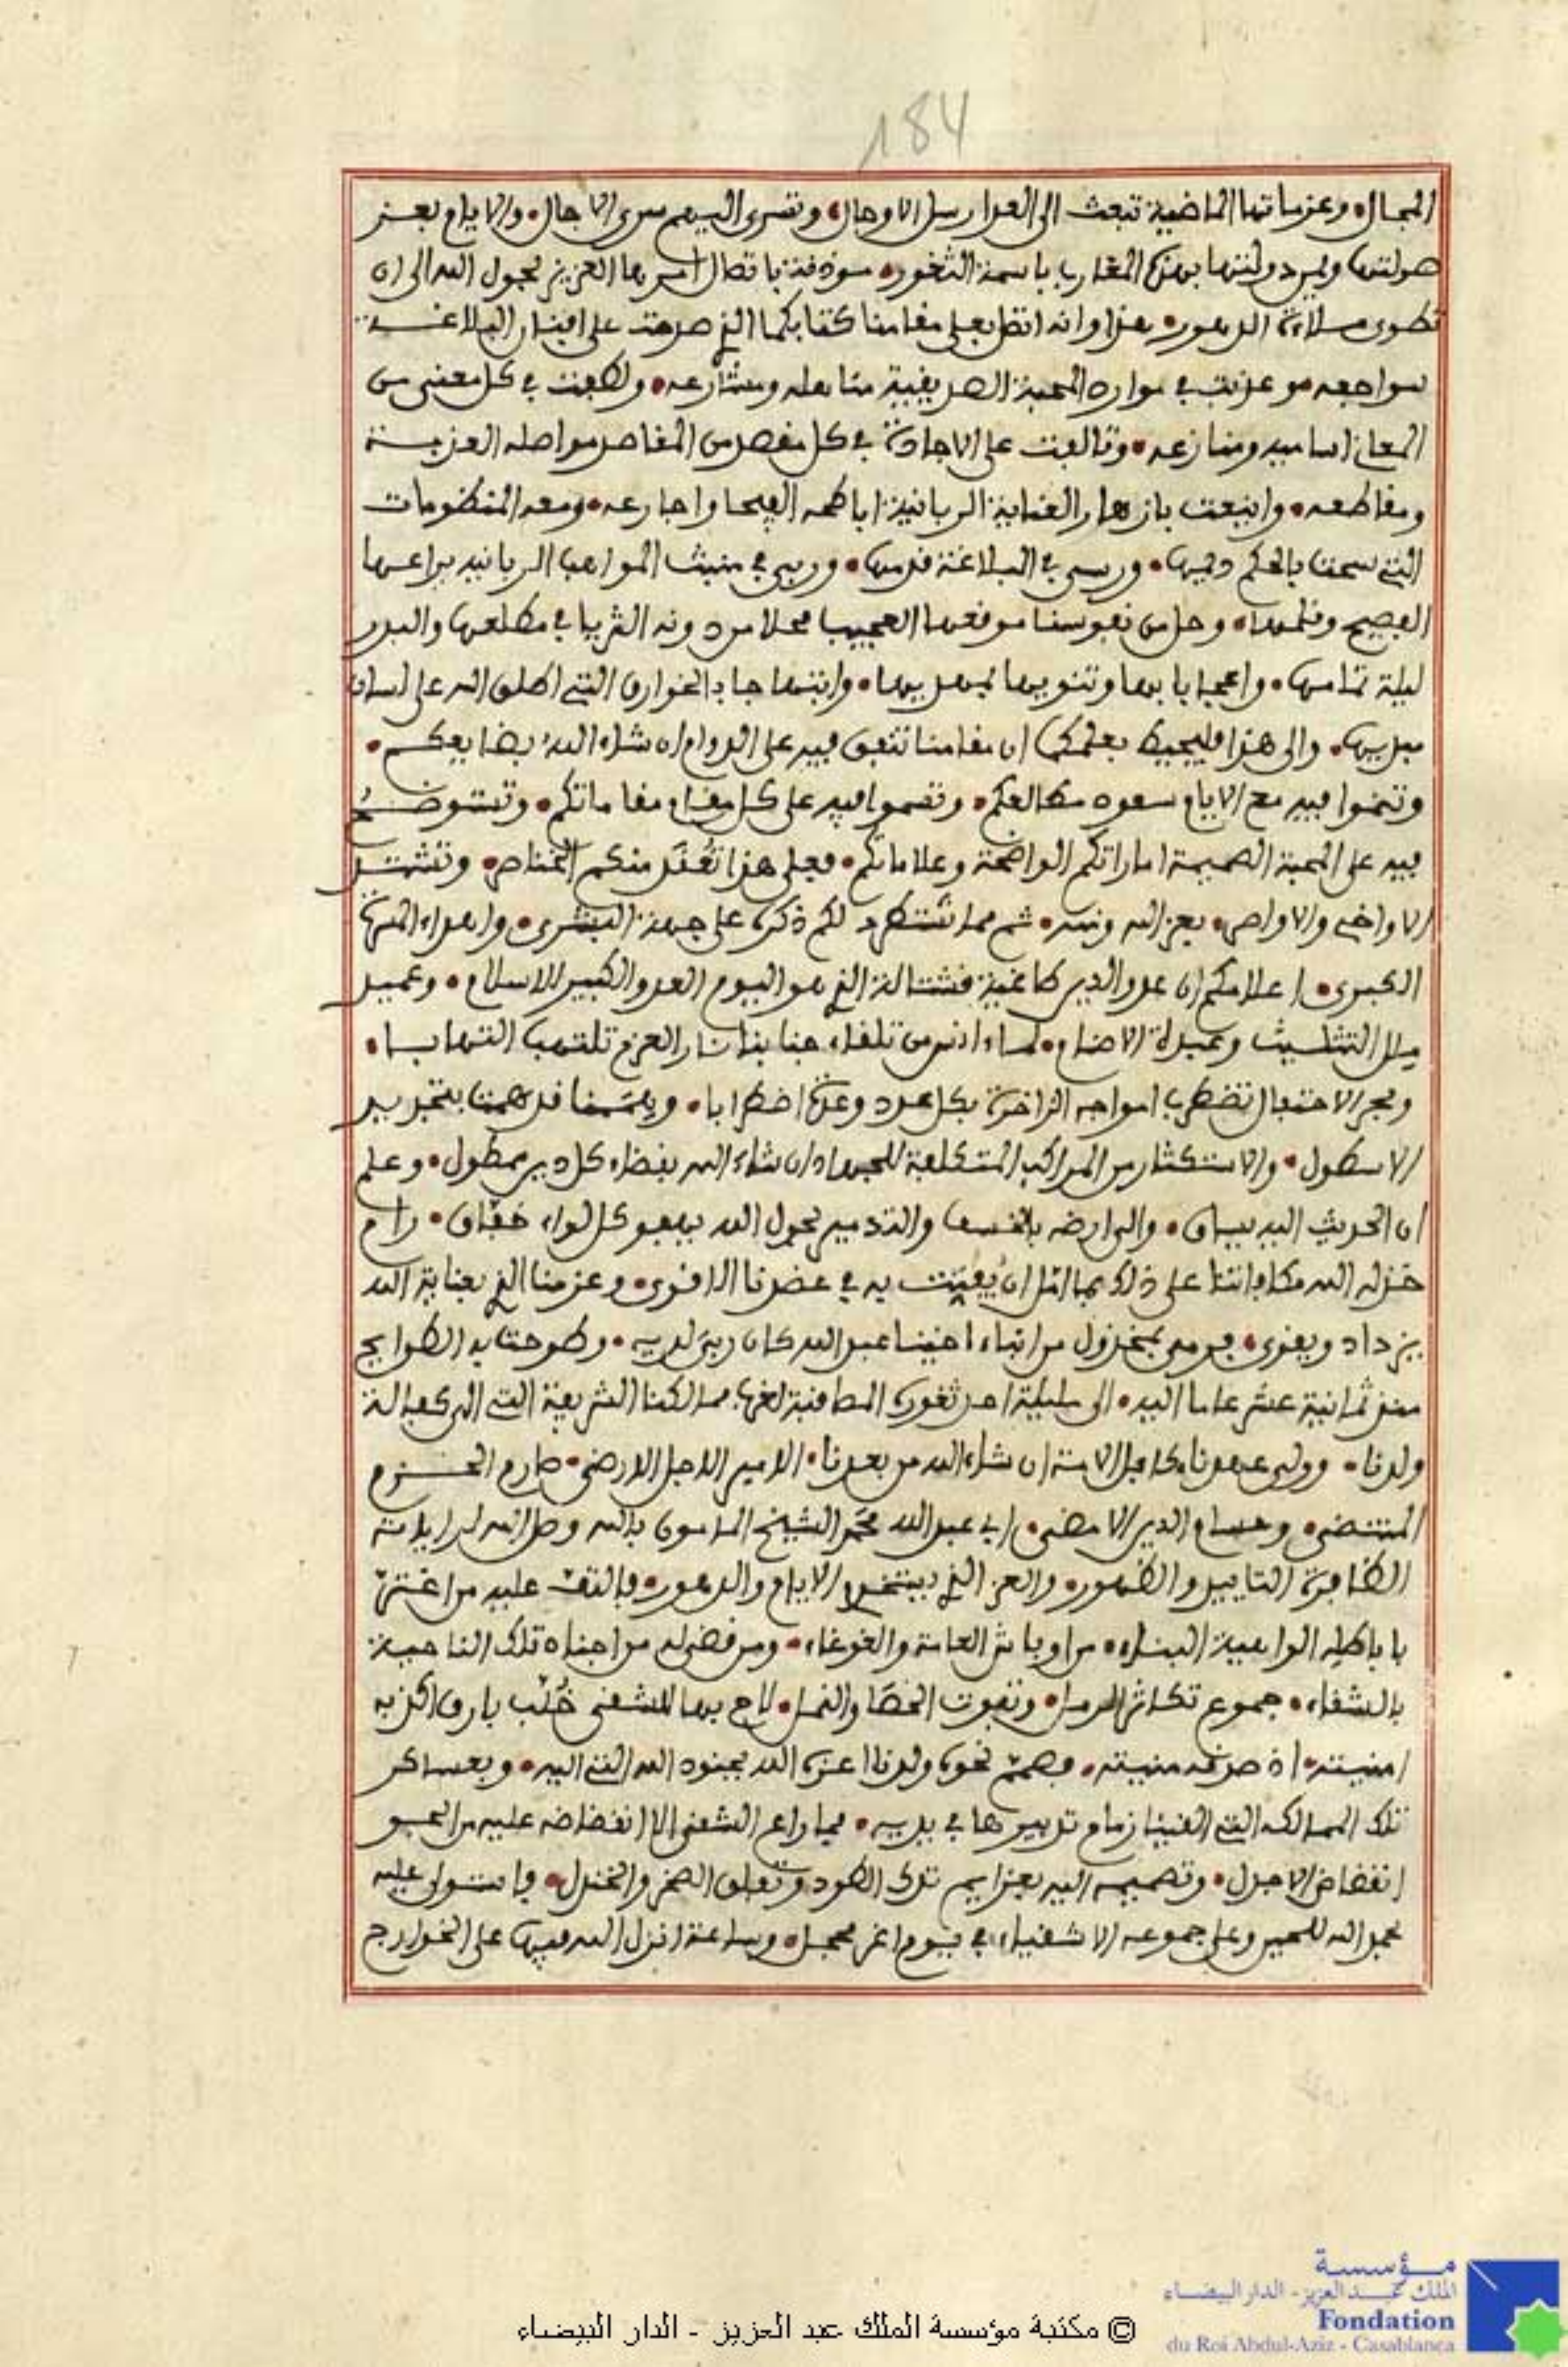 184
المجال وعزماتها الماضية تبعث الى العدا رسل الاوجال وتسرى اليهم سرى الاجال والايام بعز
صولتها ودولتها بهذه المغارب باسمة الثغور موذنة باتصال امرها العزيز بحول الله الى ان
تطوى ملاءة الدهور هذا وانه اتصل بعلي مقامنا كتابكما الذي صدحت على افنان البلاغة
سواجعه وعذبت في موارد المحبة الصديقية مناهله ومشارعه ولطفت في كل معنى من
المعاني اساميه ومنازعه وتالفت على الاجادة في كل مفصل من المفاصل مواصله العزيبة
ومقاطعه واينعت بازهار العناية الربانية اباطحه الفيحا واجارعه ومعه المنظومات
التي سحت بالحكم ديمها ورسى في البلاغة قدمها وربى في منبت المواهب الربانيه يراعها
الفصيح وقلمها وحل من نفوسنا موقعها العجيب محلا من دونه الثريا في مطلعها والبدر
ليلة تمامها واعجابا بها وتنويها بمهديها وانتما جابا الخوارق التي اطلق الله على لسان
مبديها والى هذا فليحيط بعلمكما ان مقامنا تنفق فيه على الدوام ان شاء الله بضايعكم
وتنموا فيه مع الايام سعود مطالعكم وتسموا فيه على كل مقام مقاماتكم وتستوضح
فيه على المحبة الصميمة اماراتكم الواضحة وعلاماتكم فعلى هذا تعقد منكم الخناصر وتشتد
الاواخي والاواصر بعز الله ومنه ثم مما نستطرد لكم ذكره على جهة البشرى واهداء المسرة
الكبرى اعلامكم ان عدو الدين طاغية قشتالة الذي هو اليوم العدو الكبير للاسلام وعميد
ملل التثليث وعبدة الاصنام لما انس من تلقاء جنابنا نار العزم تلتهب التهابا
وبحر الاحتفال تضطرب امواجه الزاخرة بكل عدد وعدة اضطرابا وهممنا قد همت بتجديد
الاسطول والاستكثار من المراكب المتكلفة للجهاد ان شاء الله بقضاء كل دين ممطول وعلم
ان الحديث اليه يساق والى ارضه بالخسف والتدمير بحول الله يهفو كل لواء خفاق رام
خذله الله مكافاتنا على ذلك بما امل ان يفت به في عضدنا الاقوى وعزمنا الذي بعناية الله
يزداد ويقوى فرمى بمخذول من ابناء اخينا عبد الله كان ربى لديه وطوحت به الطوايح
منذ ثمانية عشر عاما اليه الى مليلية احد ثغوره المصاقبة لغرب ممالكنا الشريفة التي الى كفالة
ولدنا وولي عهدنا كافل الامة ان شاء الله من بعدنا الامير الاجل الارضى صارم الحزم
المنتضى وحسام الدين الامضى ابي عبد الله محمد الشيخ المامون بالله وصل الله له لرايلته
الظافرة التاييد والظهور والعز الذي يستخدم الايام والدهور فالتف عليه من اغتر
باباطله الواهية البناء من اوباش العامة والغوغاء ومن قضي له من اجناد تلك الناحية
بالشقاء جموع تكاثر الرمل وتفوت الحصا والنمل لاح بها للشقي خلب بارق اكذبه
امنيته اذ صدقه منيته فصمم نحوه ولدنا اعزه الله بجنود الله التي اليه وبعساكر
تلك الممالك التي القينا زمام تدبيرها في يديه فما راع الشقي الا انقضاضه عليه من الجو
انقضاض الاجدل وتصميمه اليه بعزايم تدك الطود وتفلق الصخر والجندل فاستولى عليه
بحمد الله للحين وعلى جموعه الاشقياء في يوم اغر محجل وساعة انزل الله فيها على الخوارج
مؤسسة
الملك عبد العزيز - الدار البيضاء
Fondation
du Roi Abdul-Aziz - Casablanca
© مكتبة مؤسسة الملك عبد العزيز - الدار البيضاء